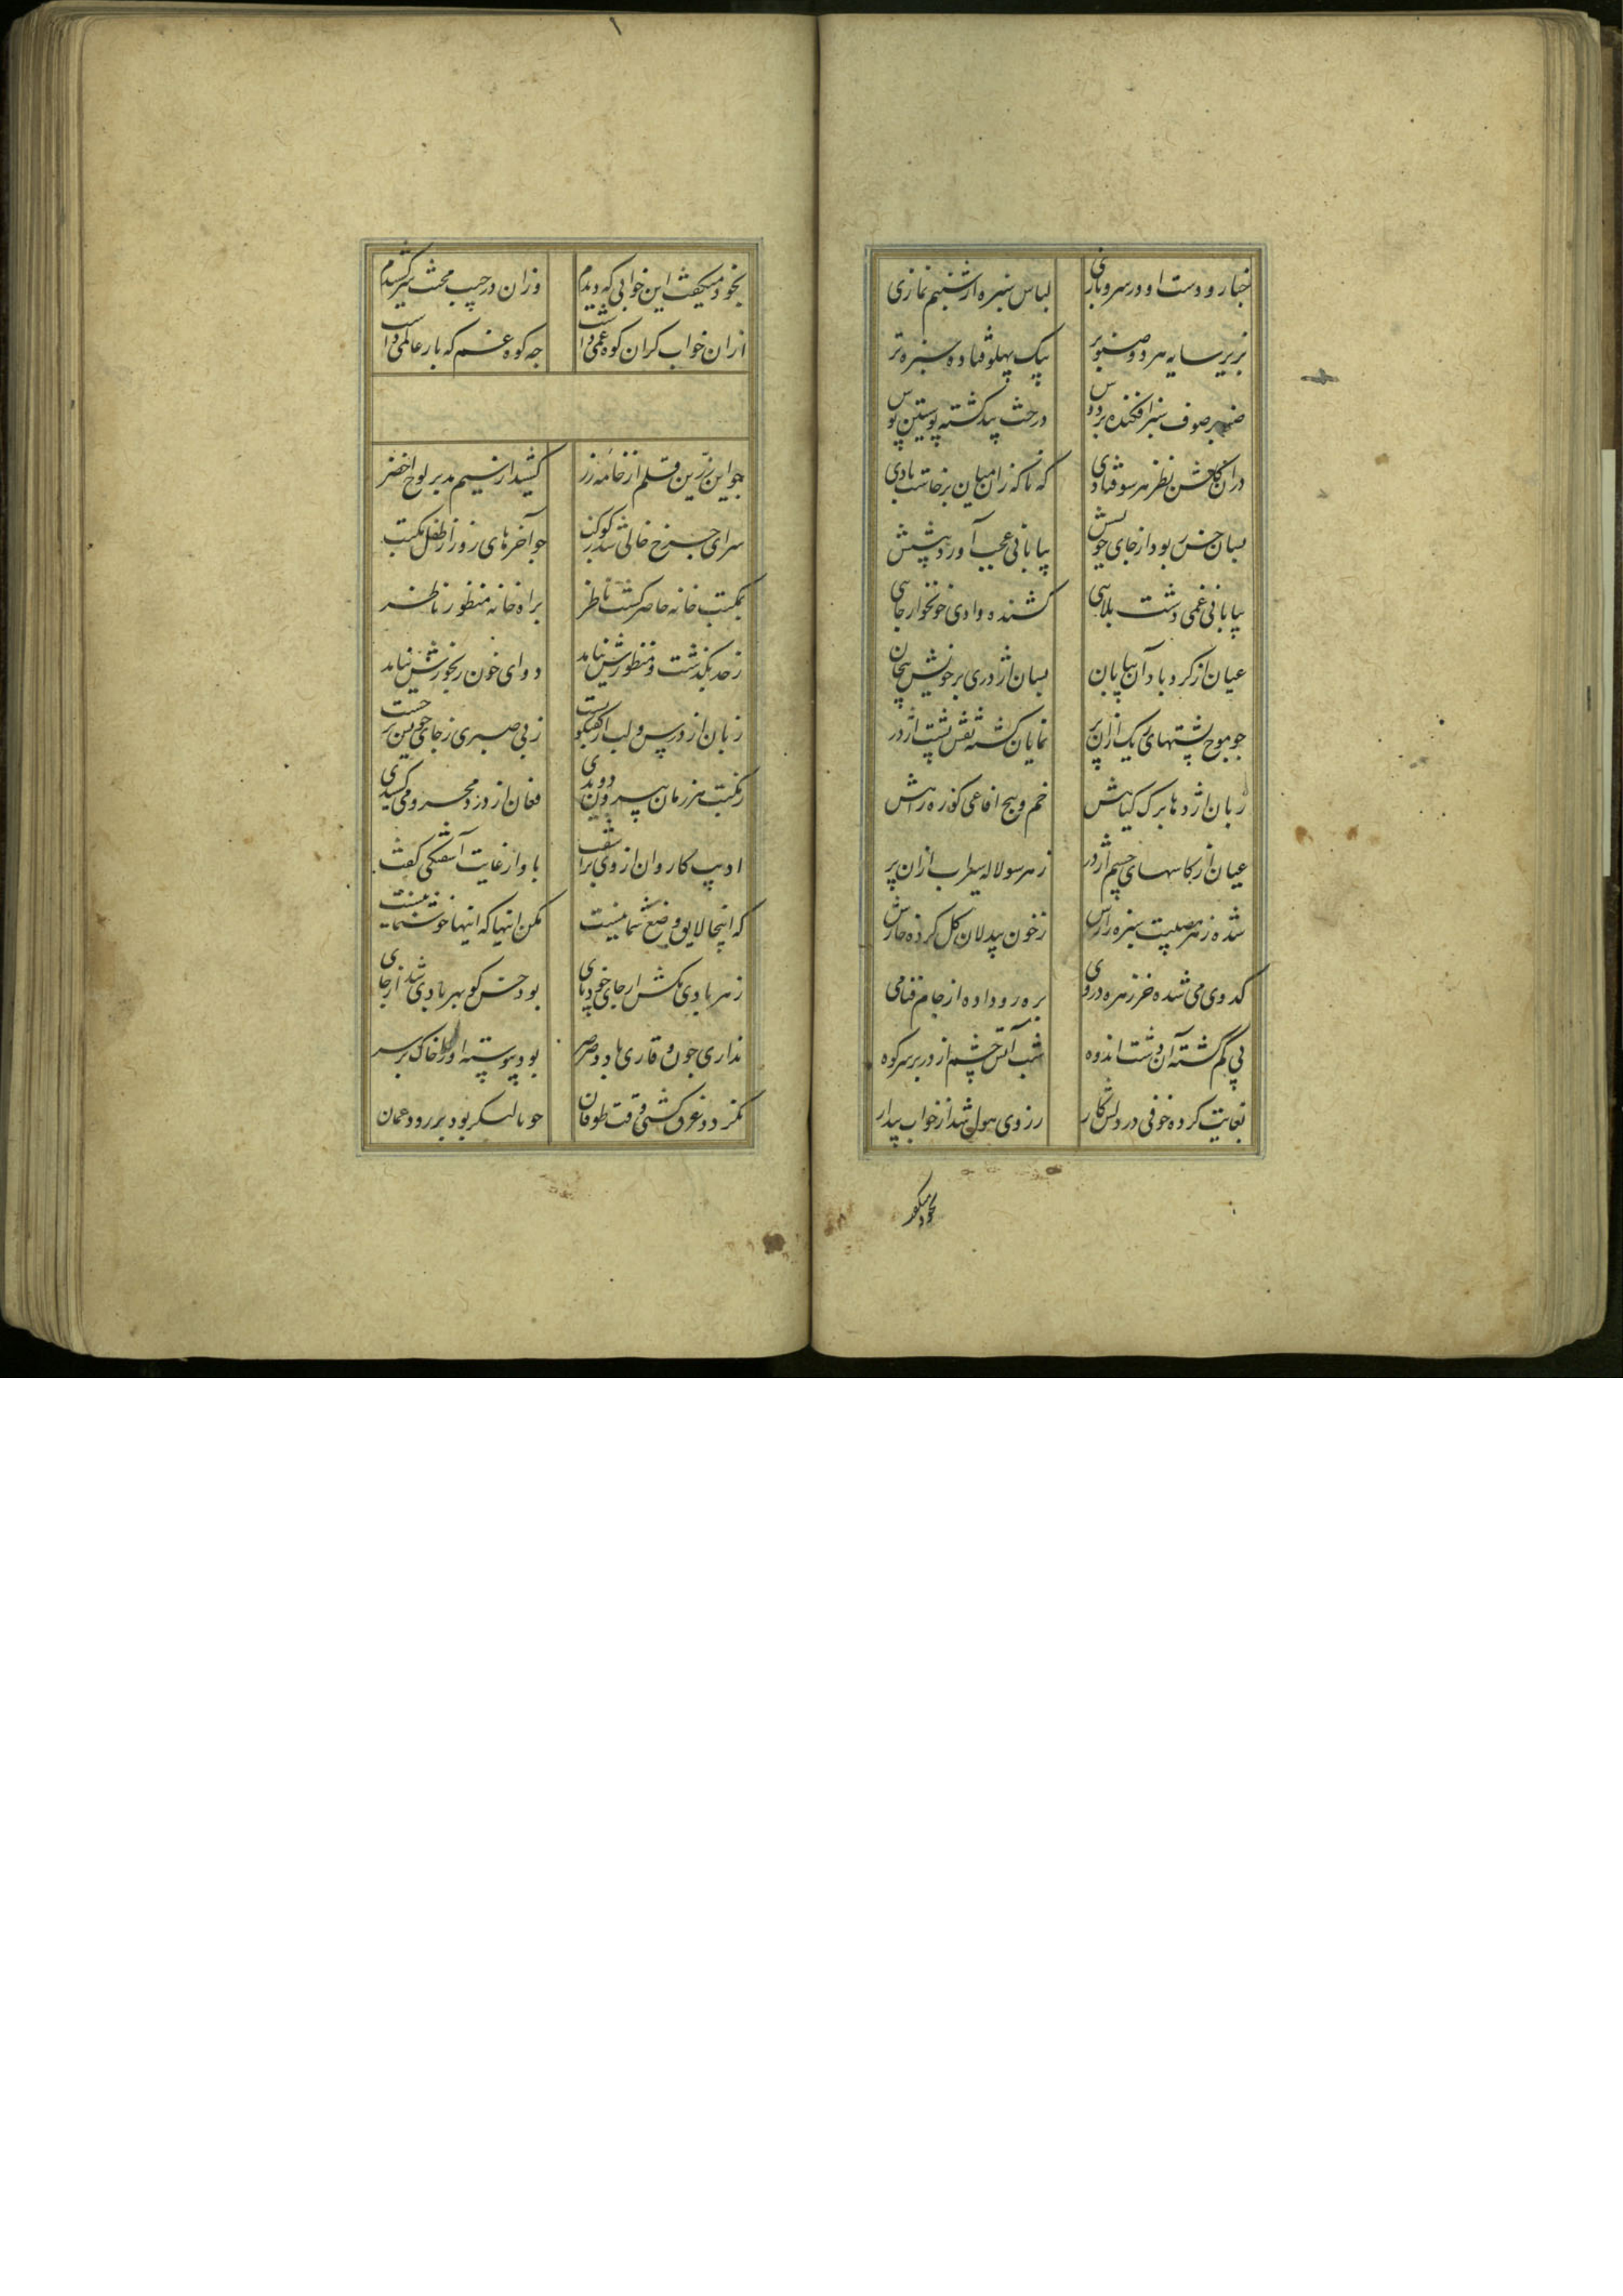 چنار و دست او در سرو بازی لباس سبزه از شبنم نمازی
بزیر سایه سرو و صنوبر بیک پهلو فتاده سبزه تر
صنوبر صوف سبز افکنده بر دوس درخت بید کشته پوستین پوس
دران کلشن نظر هر سو فتادی که ناکه زان میان برخاست بادی
بسان خس ربود از جای خویش بیابانی عجب آورد پیشش
بیابانی غمی دشت بلایی کشنده وادی خونخوار جایی
عیان از کردباد آن بیابان بسان اژدری بر خویش پیچان
جو موج پشتهای ریک ازان بر نمایان کشته نقش پشت اژدر
زبان اژدها برک کیاهش خم و پیج افاعی کوره راهش
عیان از کاسهای چشم اژدر زهر سو لاله سیراب ازان بر
شده زهر مصیبت سبزه زارس ز خون بیدلان کل کرده خارش
کدوی می شده خرزهره در وی بره رو داده از جام فنا می
پی کم کشته آن دشت اندوه شب آتش چشم اژدر بر سر کوه
بغایت کرده خوفی در دلش کار ز روی هول شد از خواب بیدار
بخود میکفت
بخود میکفت این خوابی که دیدم وزان در جیب محنت سر کشیدم
ازان خواب کران کوه غمی داشت جه کوه غم که بار عالمی داشت
جو این زرین قلم از خامه زر کشید از سیم مد بر لوح اخضر
سرای چرخ خالی شد ز کوکب جو آخرهای روز از طفل مکتب
بمکتب خانه حاضر کشت ناظر براه خانه منظور ناظر
ز حد بکذشت و منظورش نیامد دوای خون رنجورش نیامد
زبان از درس و لب از کفتکو بست ز بی صبری ز جای خویش برجست
ز مکتب هر زمان بیرون دویدی فغان از درد محرومی کشیدی
ادیب کاروان از وی بر آشفت باو از غایت آشفتکی کفت
که اینها لایق وضع شما نیست مکن اینها که اینها خوشنما نیست
زهر بادی مکش از جای خود پای بود خس کو بهر بادی شد از جای
نداری جون وقاری باد صرصر بود پیوسته او را خاک بر سر
نکردد غرق کشتی وقت طوفان جو با لنکر بود بر رود عمان